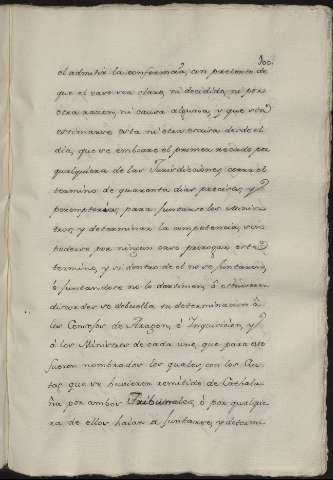 100.
el admitir la conferencia, con pretexto de
que el caso sea claro, ni decidido, ni por
otra razon, ni causa alguna, y que sin
estimarse esta ni otra escusa desde el
dia, que se embiare el primer recado por
qualquiera de las Jurisdiciones corra el
termino de quaranta dias precisos, y
peremptorios, para juntarse los Minis-
tros, y determinar la competencia, sin
poderse por ningun caso prorogar este
termino, y si dentro de el no se juntaren,
ó juntandose no lo decidiesen, ó estuviesen
discordes se debuelba su determinacion â
los Consejos de Aragon, é Inquisicion, y
â los Ministros de cada uno, que para esto
fueren nombrados los quales, con los Au-
tos que se huvieren remitido de Cathalu-
ña por ambos Tribunales, ó por qualquie-
ra de ellos haian de juntarse, y determi-